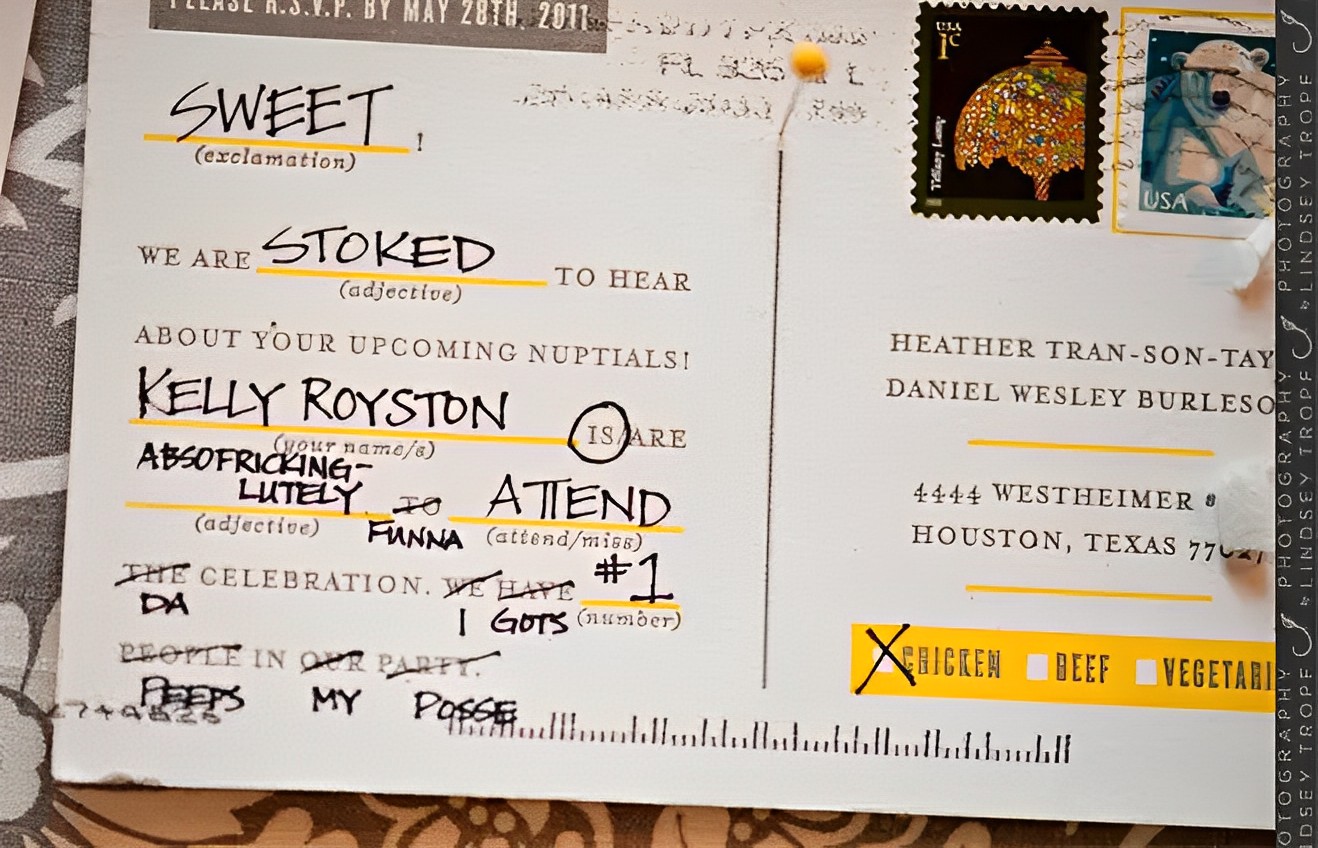 PLEASE R.S.V.P. BY MAY 28TH, 2011
SWEET !
(exclamation)
WE ARE STOKED TO HEAR
(adjective)
ABOUT YOUR UPCOMING NUPTIALS!
KELLY ROYSTON IS/ARE
(your name/s)
ABSOFRICKING-
LUTELY TO ATTEND
(adjective) FUNNA (attend/miss)
THE CELEBRATION. WE HAVE #1
DA I GOTS (number)
PEOPLE IN OUR PARTY.
PEEPS MY POSSE
USA
1c
Tiffany Lamp
USA
HEATHER TRAN-SON-TAY
DANIEL WESLEY BURLESO
4444 WESTHEIMER
HOUSTON, TEXAS
X CHICKEN BEEF VEGETARI
PHOTOGRAPHY
by LINDSEY TROPF